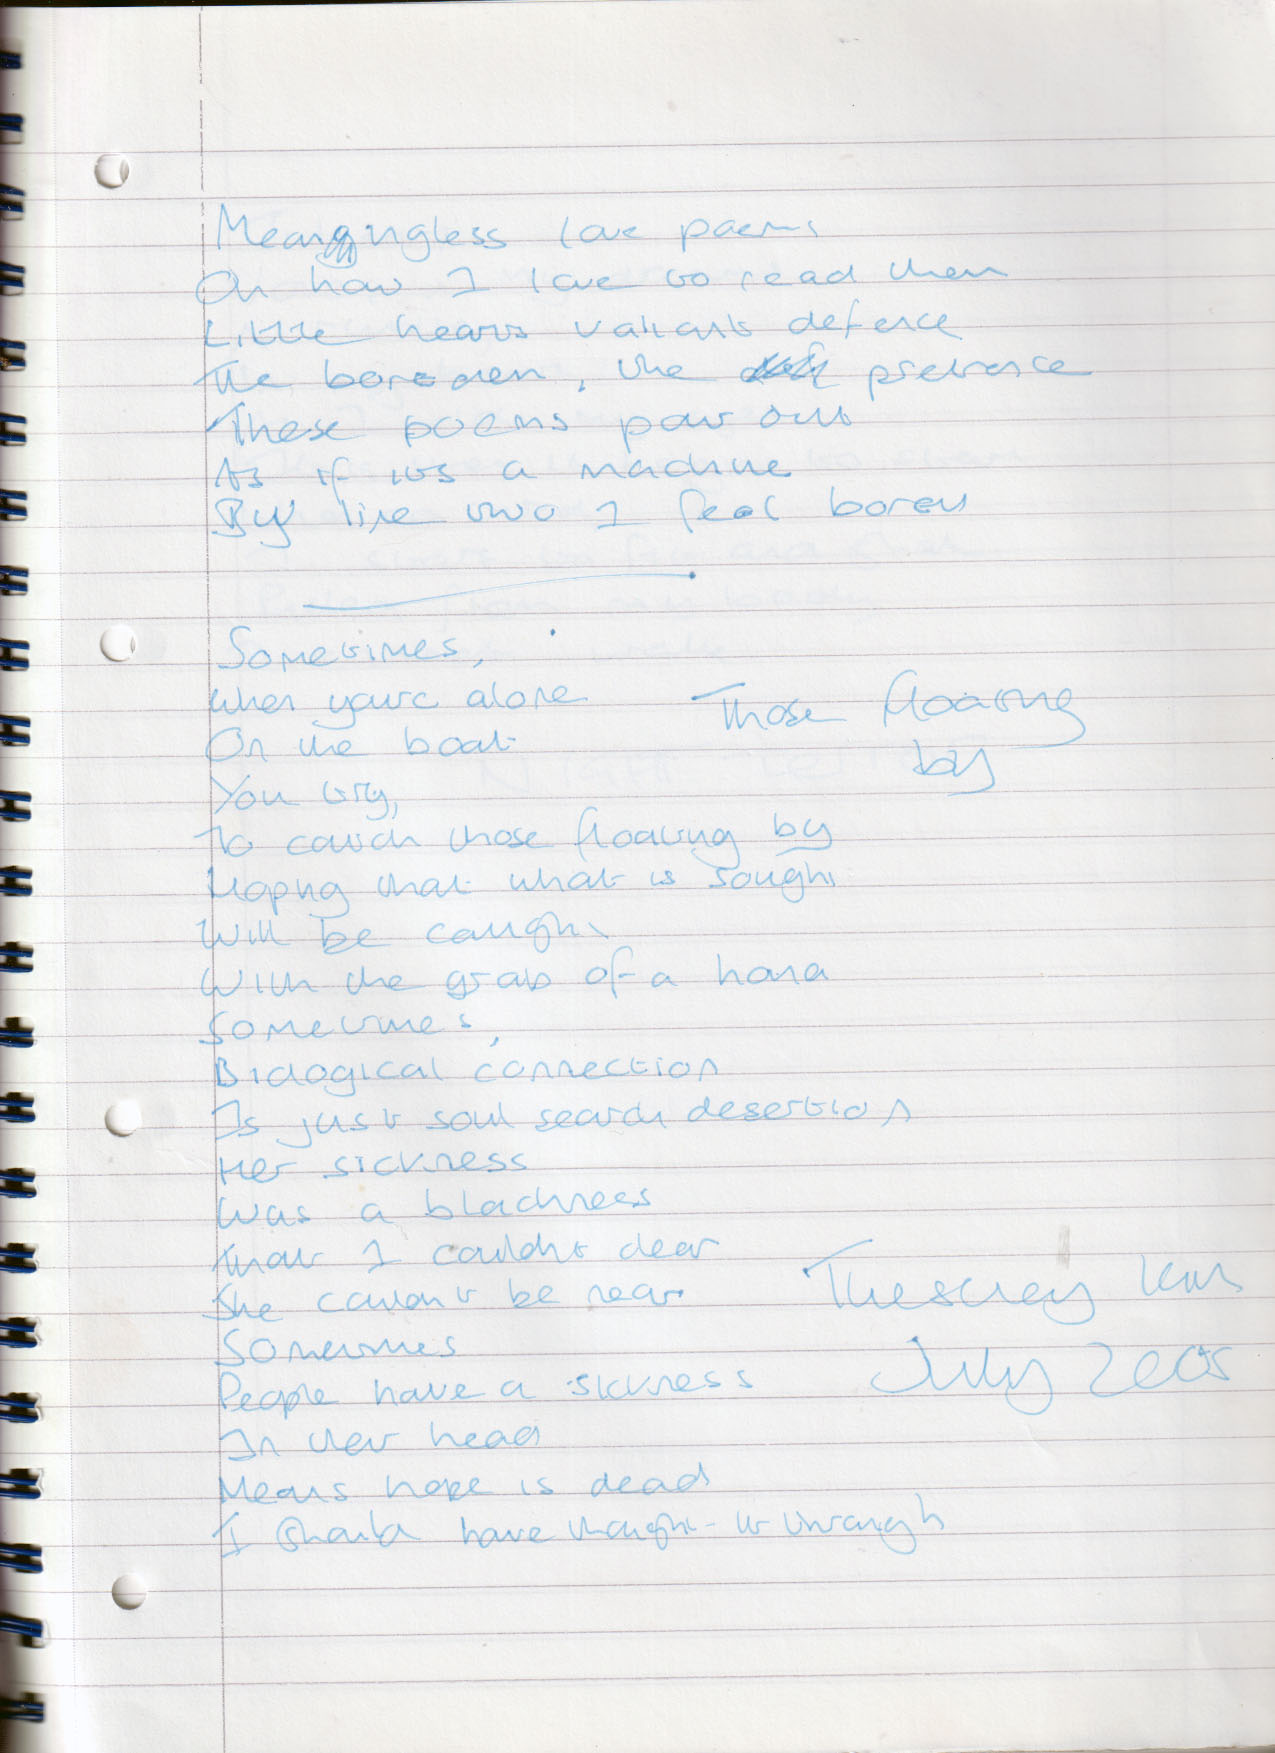 Meaningless love poems
Oh how I love to read them
Little hearts valiant defence
The boredom, the pretence
These poems pour out
As if its a machine
By line two I feel bored
Sometimes,
When your alone
On the boat
You try,
To catch those floating by
Hoping that what is sought
Will be caught
With the grab of a hand
Sometimes,
Biological connection
Is just soul search desertion
Her sickness
Was a blackness
That I couldnt clear
She couldnt be near
Sometimes
People have a sickness
In their head
Means hope is dead
I should have thought it through
Those floating
by
July 2005